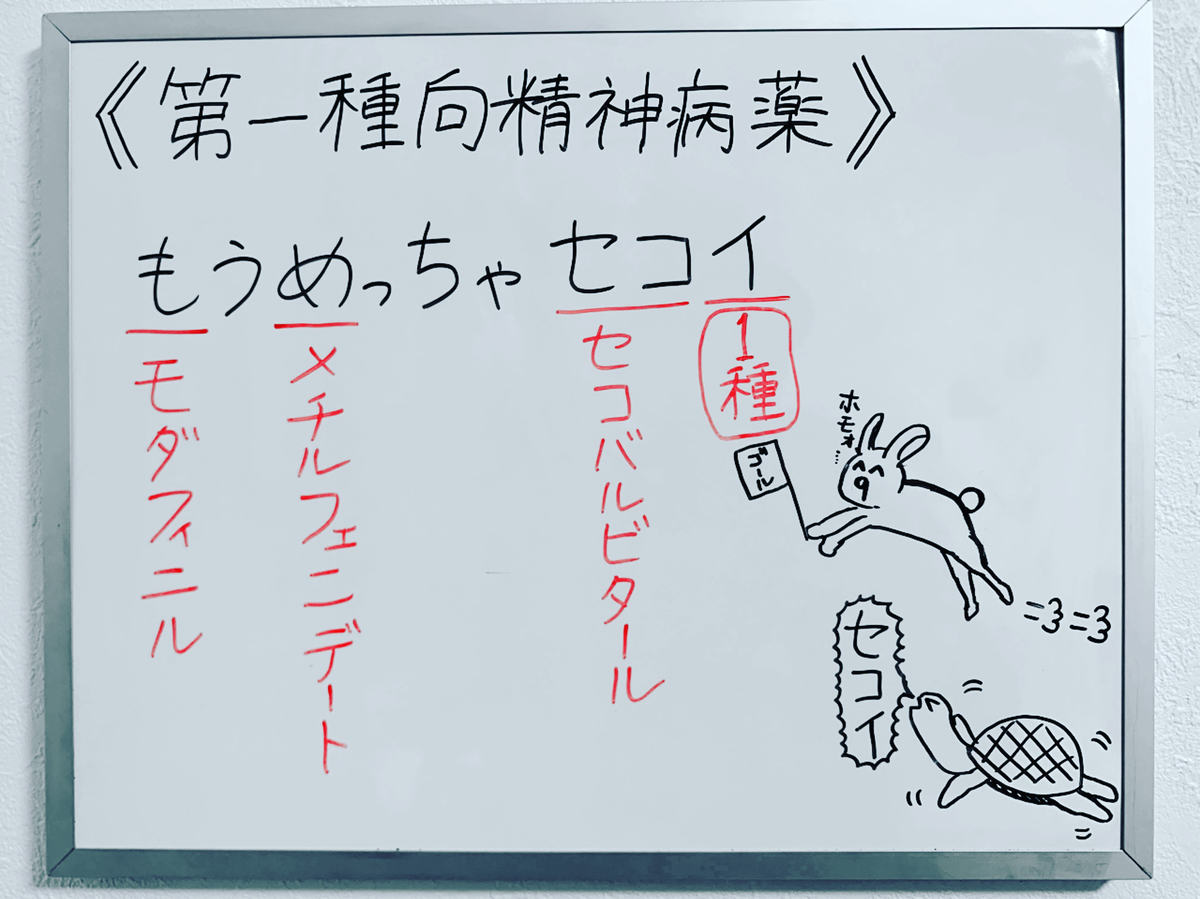 《第一種向精神病薬》
もうめっちゃセコイ
モダフィニル
メチルフェニデート
セコバルビタール
1種
ゴール
ホモォ…
セコイ